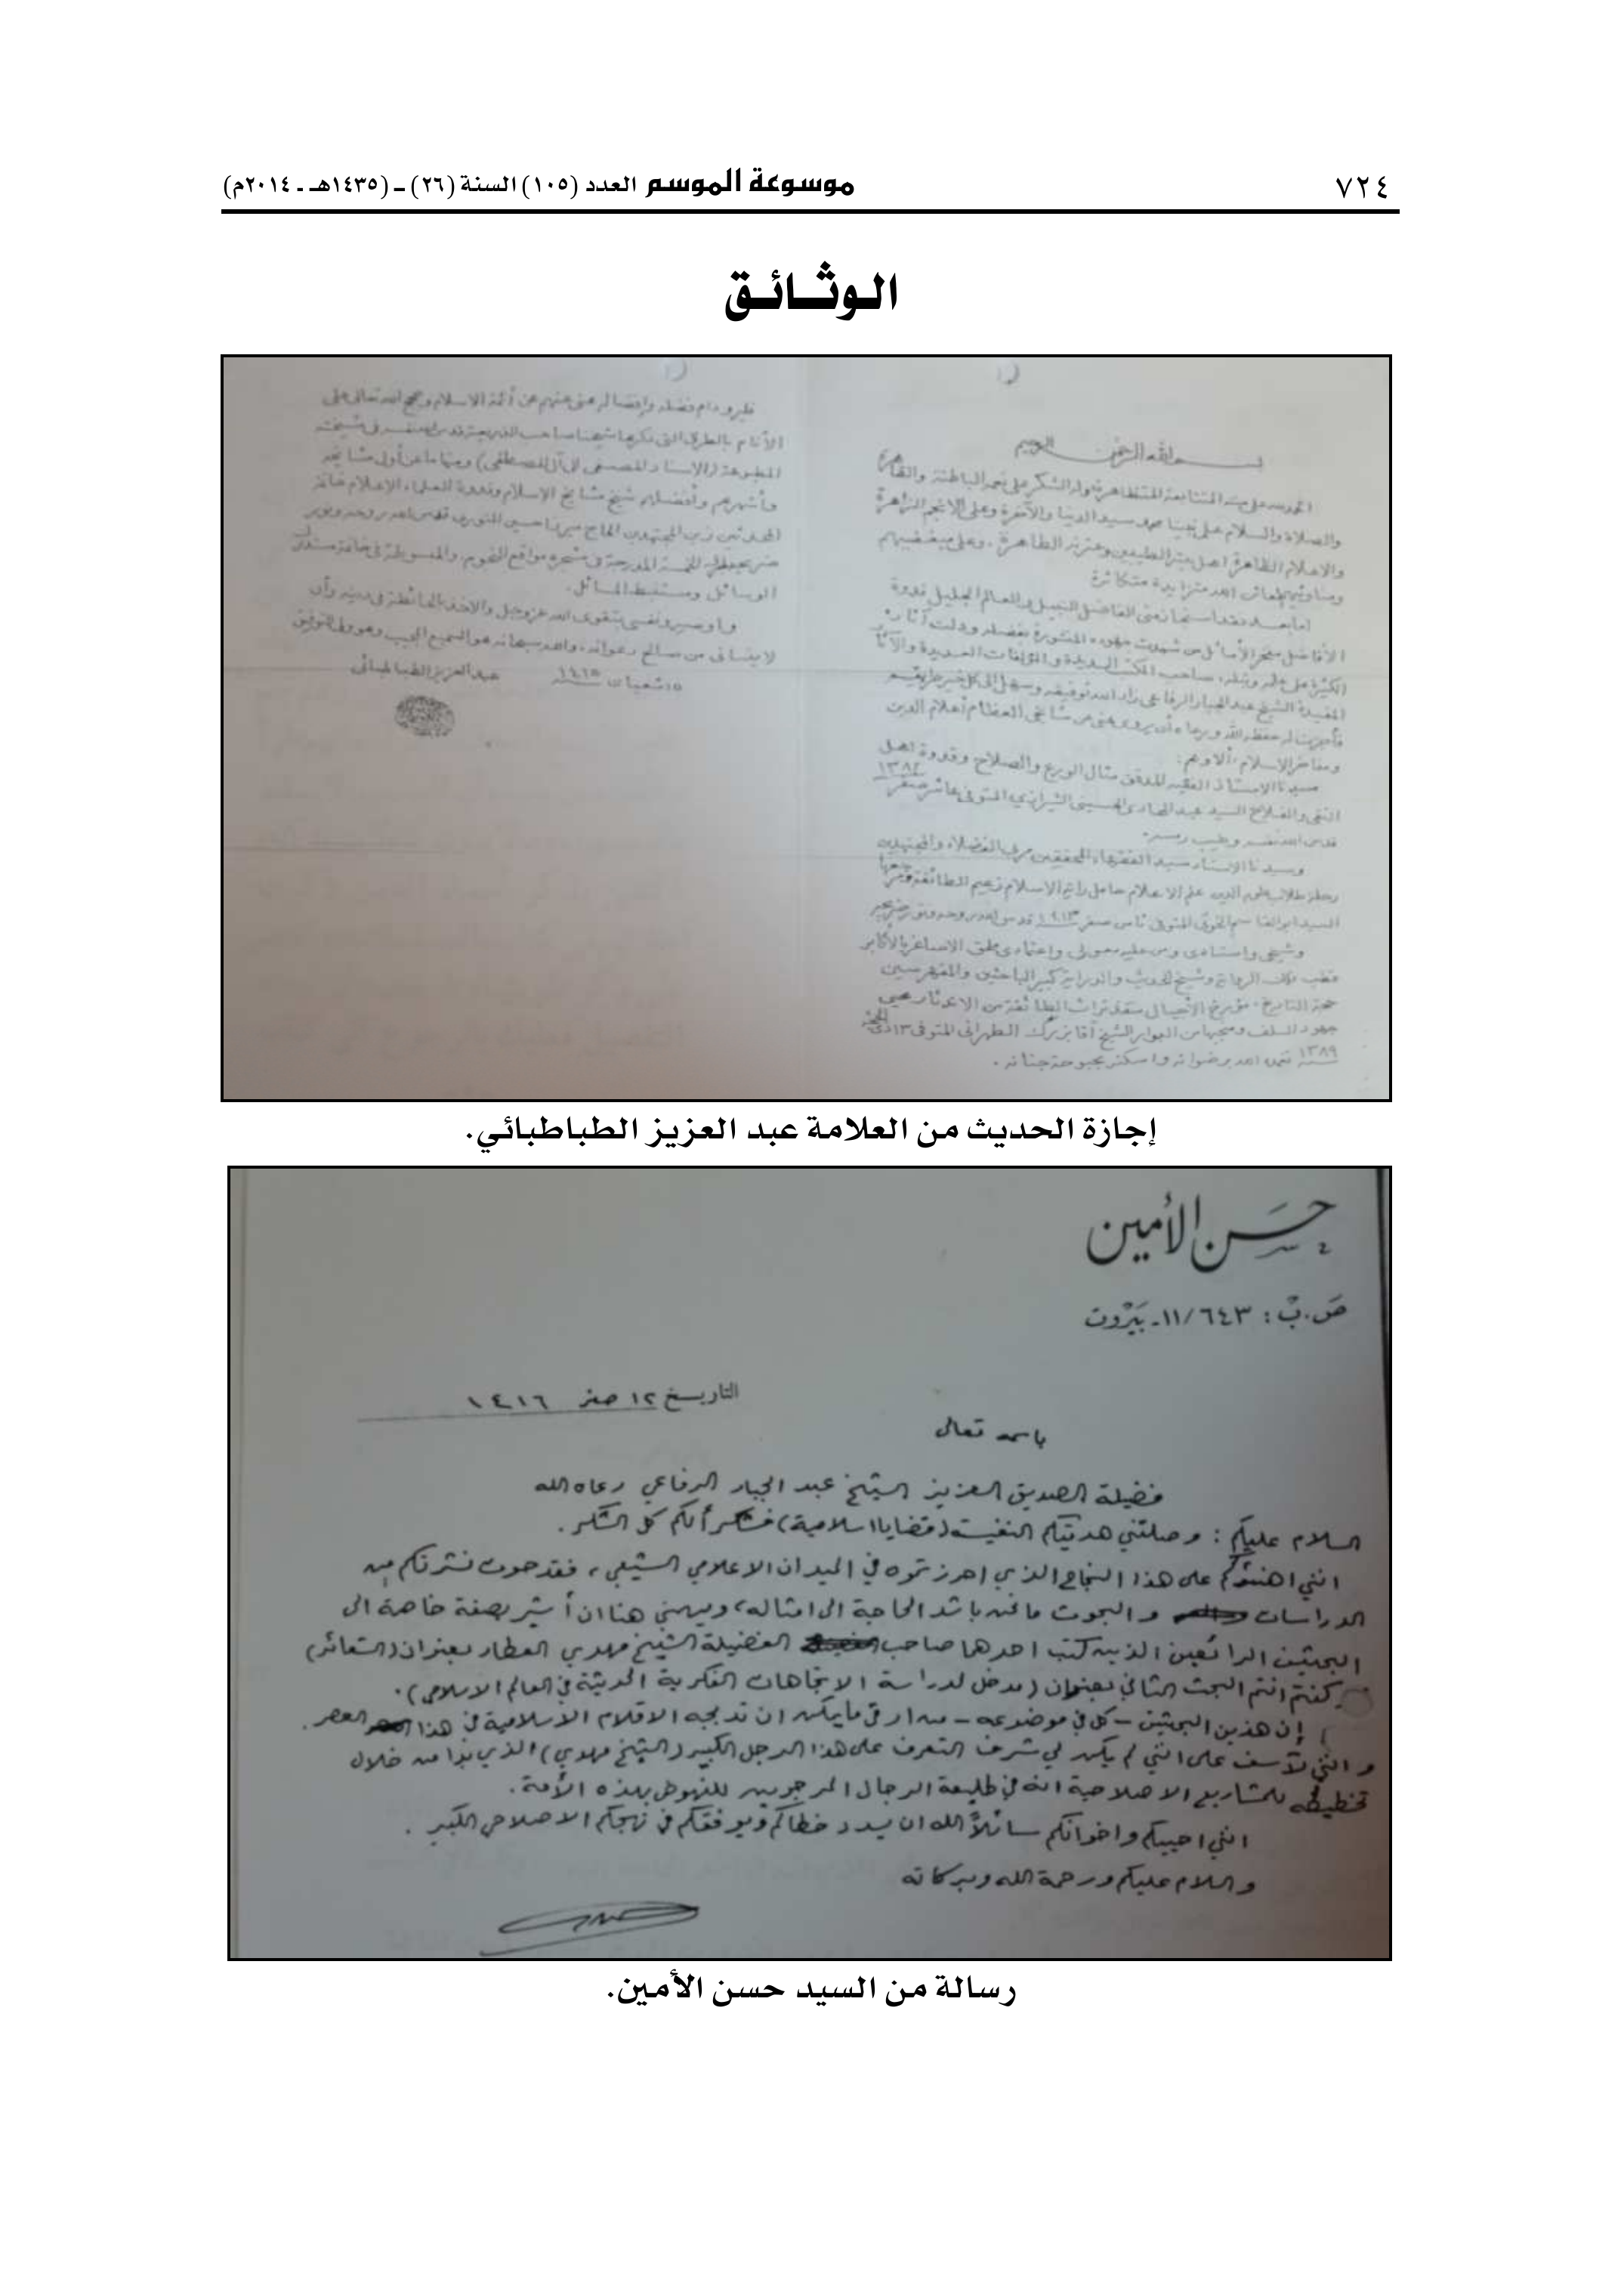 ٧٢٤
موسوعة الموسم العدد (١٠٥) السنة (٢٦) ــ (١٤٣٥هـ ـ ٢٠١٤م)
الوثائق
بسم الله الرحمن الرحيم
الحمد لله على مننه المتتابعة المتظاهرة وله الشكر على نعمه الباطنة والظاهرة
والصلاة والسلام على نبينا محمد سيد الدنيا والآخرة وعلى الانجم الزاهرة
والاعلام الظاهرة اهل بيته الطيبين وعترته الطاهرة، وعلى مبغضيهم
متزايدة متكاثرة
اما بعد فقد استجازني الفاضل النبيل والعالم الجليل قدوة
الأفاضل مفخر الأماثل من شهدت جهوده المشكورة بفضله ودلت آثاره
الكثيرة على علمه ونبله، صاحب الكتب العديدة والمؤلفات العديدة والآثار
المفيدة الشيخ عبد الجبار الرفاعي زاد الله توفيقه وسهل الى كل خير طريقه
فأجزت له حفظه الله ورعاه أن يروي عني من مشايخي العظام أعلام الدين
ومفاخر الاسلام، ألا وهم:
سيدنا الاستاذ الفقيه المدقق مثال الورع والصلاح وقدوة اهل
التقى والفلاح السيد عبد الهادي الحسيني الشيرازي المتوفى عاشر صفر ١٣٨٢
قدس الله نفسه وطيب رمسه.
وسيدنا الاستاذ سيد الفقهاء المحققين مربي الفضلاء والمجتهدين
رحلة طلاب علوم الدين علم الاعلام حامل راية الاسلام زعيم الطائفة ومرجعها
السيد ابو القاسم الخوئي المتوفى ثامن صفر ١٤١٣ قدس الله روحه ونور ضريحه
وشيخي واستاذي ومن عليه معولي واعتمادي ملحق الاصاغر بالأكابر
قطب فلك الرواية وشيخ الحديث والدراية كبير الباحثين والمفهرسين
حجة التاريخ، مؤرخ الأجيال منقذ تراث الطائفة من الاندثار محيي
جهود السلف ومنجيها من البوار الشيخ آقا بزرك الطهراني المتوفى ١٣ ذي الحجة
١٣٨٩ تغمده الله برضوانه واسكنه بحبوحة جنانه.
دام فضله وإفضاله عني عنهم عن أئمة الاسلام وحجج الله تعالى على
الأنام بالطرق التي ذكرها شيخنا صاحب الذريعة قدس الله نفسه في مشيخته
المطبوعة (الاسناد المصفى الى آل المصطفى) ومنها ما عن أول مشايخه
وأشهرهم وأفضلهم شيخ مشايخ الاسلام وقدوة العلماء الاعلام خاتم
المحدثين زين المجتهدين الحاج ميرزا حسين النوري قدس الله روحه ونور
ضريحه بطرقه الخمسة المدرجة في مشجره مواقع النجوم، والمبسوطة في خاتمة مستدرك
الوسائل ومستنبط المسائل.
واوصيه ونفسي بتقوى الله عز وجل والاخذ بالحائطة في دينه وأن
لا ينساني من صالح دعواته، والله سبحانه هو السميع المجيب وهو ولي التوفيق
١٥ شعبان ١٤١٥ عبد العزيز الطباطبائي
إجازة الحديث من العلامة عبد العزيز الطباطبائي.
حسن الأمين
ص.ب: ١١/٦٤٣ـ بيروت
التاريخ ١٢ صفر ١٤١٦
باسمه تعالى
فضيلة الصديق العزيز الشيخ عبد الجبار الرفاعي رعاه الله
السلام عليكم: وصلتني هديتكم النفيسة (قضايا اسلامية) فشكراً لكم كل الشكر.
انني اهنئكم على هذا النجاح الذي احرزتموه في الميدان الاعلامي الشيعي، فقد حوت نشرتكم من
الدراسات والبحوث ما نحن باشد الحاجة الى امثاله، ويهمني هنا ان أشير بصفة خاصة الى
البحثين الرائعين الذين كتب احدهما صاحب الفضيلة الشيخ مهدي العطار بعنوان (الشعائر)
وكتبتم انتم البحث الثاني بعنوان (مدخل لدراسة الاتجاهات الفكرية الحديثة في العالم الاسلامي).
إن هذين البحثين - كل في موضوعه - من ارقى ما يمكن ان تدبجه الاقلام الاسلامية في هذا العصر.
وانني لآسف على انني لم يكن لي شرف التعرف على هذا الرجل الكبير (الشيخ مهدي) الذي بدا من خلال
تخطيطه للمشاريع الاصلاحية انه في طليعة الرجال المرجوين للنهوض بهذه الأمة.
انني احييكم واخوانكم سائلاً الله ان يسدد خطاكم ويوفقكم في نهجكم الاصلاحي الكبير.
والسلام عليكم ورحمة الله وبركاته
رسالة من السيد حسن الأمين.